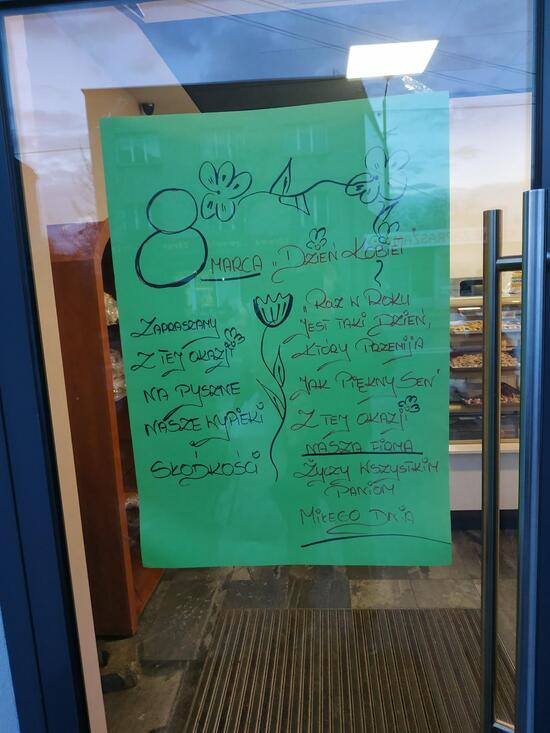 8 MARCA „DZIEŃ KOBIET"
ZAPRASZAMY
Z TEJ OKAZJI
NA PYSZNE
NASZE WYPIEKI
I
SŁODKOŚCI
„RAZ W ROKU
JEST TAKI DZIEŃ,
KTÓRY PRZEMIJA
JAK PIĘKNY SEN"
Z TEJ OKAZJI
NASZA FIRMA
ŻYCZY WSZYSTKIM
PANIOM
MIŁEGO DNIA